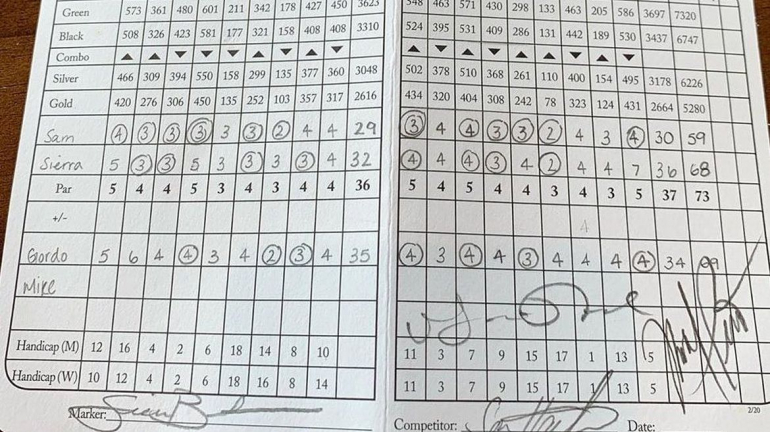 Green 573 361 480 601 211 342 178 427 450 3623 548 463 571 430 298 133 463 205 586 3697 7320
Black 508 326 423 581 177 321 158 408 408 3310 524 395 531 409 286 131 442 189 530 3437 6747
Combo
Silver 466 309 394 550 158 299 135 377 360 3048 502 378 510 368 261 110 400 154 495 3178 6226
Gold 420 276 306 450 135 252 103 357 317 2616 434 320 404 308 242 78 323 124 431 2664 5280
Sam 4 3 3 3 3 3 2 4 4 29 3 4 4 3 3 2 4 3 4 30 59
Sierra 5 3 3 5 3 3 3 3 4 32 4 4 4 3 4 2 4 4 7 36 68
Par 5 4 4 5 3 4 3 4 4 36 5 4 5 4 4 3 4 3 5 37 73
+/- 4
Gordo 5 6 4 4 3 4 2 3 4 35 4 3 4 4 3 4 4 4 4 34
Mike
Handicap (M) 12 16 4 2 6 18 14 8 10 11 3 7 9 15 17 1 13 5
Handicap (W) 10 12 4 2 6 18 16 8 14 11 3 7 9 15 17 1 13 5
2/20
Marker: Competitor: Date: